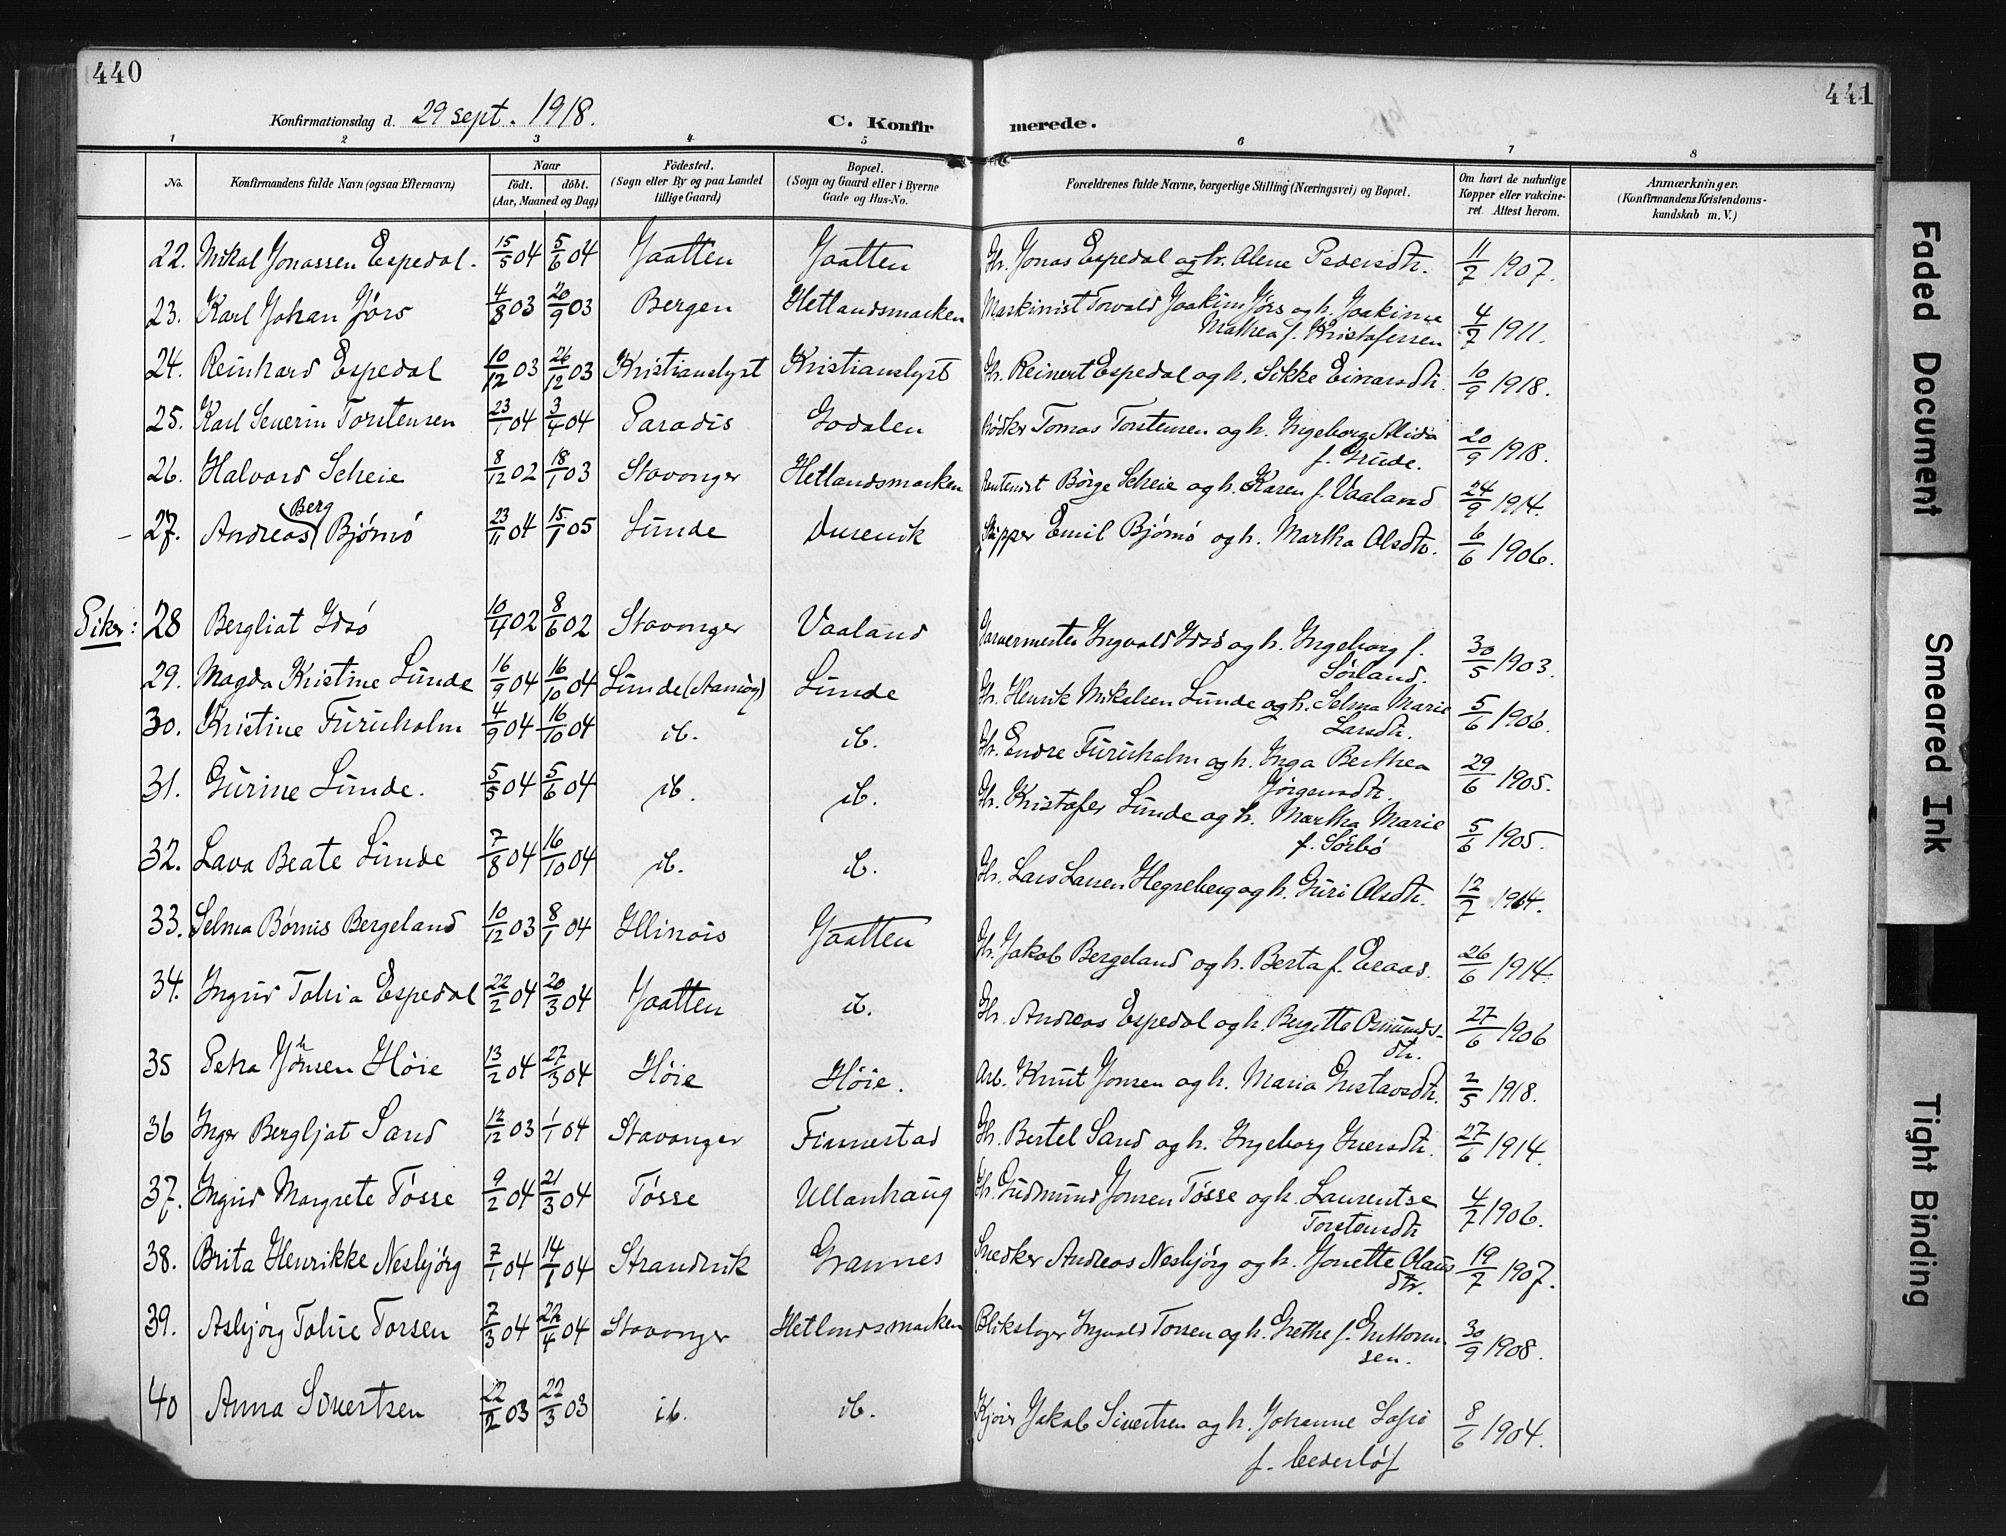 440
Konfirmationsdag d. 29 sept. 1918.
C. Konfir
1 2 3 4 5
No.
Konfirmandens fulde Navn (ogsaa Efternavn)
Naar
født. døbt.
(Aar, Maaned og Dag)
Fødested.
(Sogn eller By og paa Landet
tillige Gaard)
Bopæl.
(Sogn og Gaard eller i Byerne
Gade og Hus-No.
22. Mikal Jonassen Espedal. 15/5 04 5/6 04 Jaatten Jaatten
23. Karl Johan Jørs 4/8 03 20/9 03 Bergen Hetlandsmarken
24. Reinhard Espedal 10/12 03 26/12 03 Kristianslyst Kristianslyst
25. Karl Severin Torstensen 23/1 04 3/4 04 Paradis Godalen
26. Halvard Scheie 8/12 02 18/1 03 Stavanger Hetlandsmarken
Berg
27. Andreas Bjørnø 23/11 04 15/1 05 Lunde Dusevik
Piker:
28 Bergliat Idsø 10/4 02 8/6 02 Stavanger Vaaland
29. Magda Kristine Lunde 16/9 04 16/10 04 Lunde (Aamøy) Lunde
30. Kristine Furuholm 4/9 04 16/10 04 ib. ib.
31. Gurine Lunde. 5/5 04 5/6 04 ib. ib.
32. Lava Beate Lunde 7/8 04 16/10 04 ib. ib.
33. Selma Børnis Bergeland 10/12 03 8/1 04 Illinois Jaatten
34. Ingrid Tabia Espedal 22/2 04 20/3 04 Jaatten ib.
35 Petra Johnsen Høie 13/2 04 27/3 04 Høie Høie.
36 Inger Bergljat Sand 12/12 03 1/1 04 Stavanger Finnestad
37. Ingrid Margrete Tøsse 9/2 04 21/3 04 Tøsse Ullanhaug
38. Brita Henrikke Nesbjørg 7/1 04 14/1 04 Strandvik Grannes
39. Asbjørg Tabie Torsen 7/3 04 22/4 04 Stavanger Hetlandsmarken
40 Anna Sivertsen 22/2 03 22/3 03 ib. ib.
441
merede.
6 7 8
Forældrenes fulde Navne, borgerlige Stilling (Næringsvei) og Bopæl.
Om havt de naturlige
Kopper eller vakcine-
ret. Attest herom.
Anmærkninger.
(Konfirmandens Kristendoms-
kundskab m. V.)
Gb. Jonas Espedal og h. Alene Pedersdtr. 11/7 1907.
Maskinist Torvald Joakim Jørs og h. Joakime
Mathea f. Kristafersen 4/7 1911.
Gb. Reinert Espedal og h. Sikke Einarsdtr. 10/9 1918.
Bødker Tomas Torstensen og h. Ingeborg Alida
f. Grude. 20/9 1918.
Rentenist Børge Scheie og h. Karen f. Vaaland 24/9 1914.
Skipper Emil Bjørnø og h. Martha Olsdtr. 6/6 1906.
Garvermester Ingvald Idsø og h. Ingeborg f.
Sørland. 30/5 1903.
Gb. Henrik Mikalsen Lunde og h. Selma Marie
Larsdtr. 5/6 1906.
Gb. Endre Furuholm og h. Inga Berthea
Jørgensdtr. 29/6 1905.
Gb. Kristafer Lunde og h. Martha Marie
f. Sørbø 5/6 1905.
Gb. Lars Larsen Hegreberg og h. Guri Olsdtr. 12/7 1914.
Gb. Jakob Bergeland og h. Berta f. Eraas. 26/6 1914.
Gb. Andreas Espedal og h. Bergitte Omunds-
dtr. 27/6 1906
Arb. Knut Jonsen og h. Maria Gustavsdtr. 2/5 1918.
Gb. Bertel Sand og h. Ingeborg Iversdtr. 27/6 1914.
Gb. Gudmund Jonsen Tøsse og h. Laurentse
Torstensdtr 4/7 1906.
Snedker Andreas Nesbjørg og h. Jonette Olaus
dtr. 19/7 1907.
Blikslager Ingvald Torsen og h. Grethe f. Guttorm-
sen. 30/9 1908.
Jakob Sivertsen og h. Johanne Sofie
f. Cederløf 8/6 1904.
Faded Document
Smeared Ink
Tight Binding